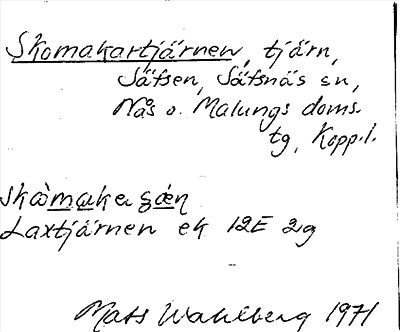 Skomakartjärnen, tjärn,
Säfsen, Säfsnäs sn,
Nås o. Malungs doms.
tg, Kopp.l.
Laxtjärnen ek 12E 2g
Mats Wahlberg 1971